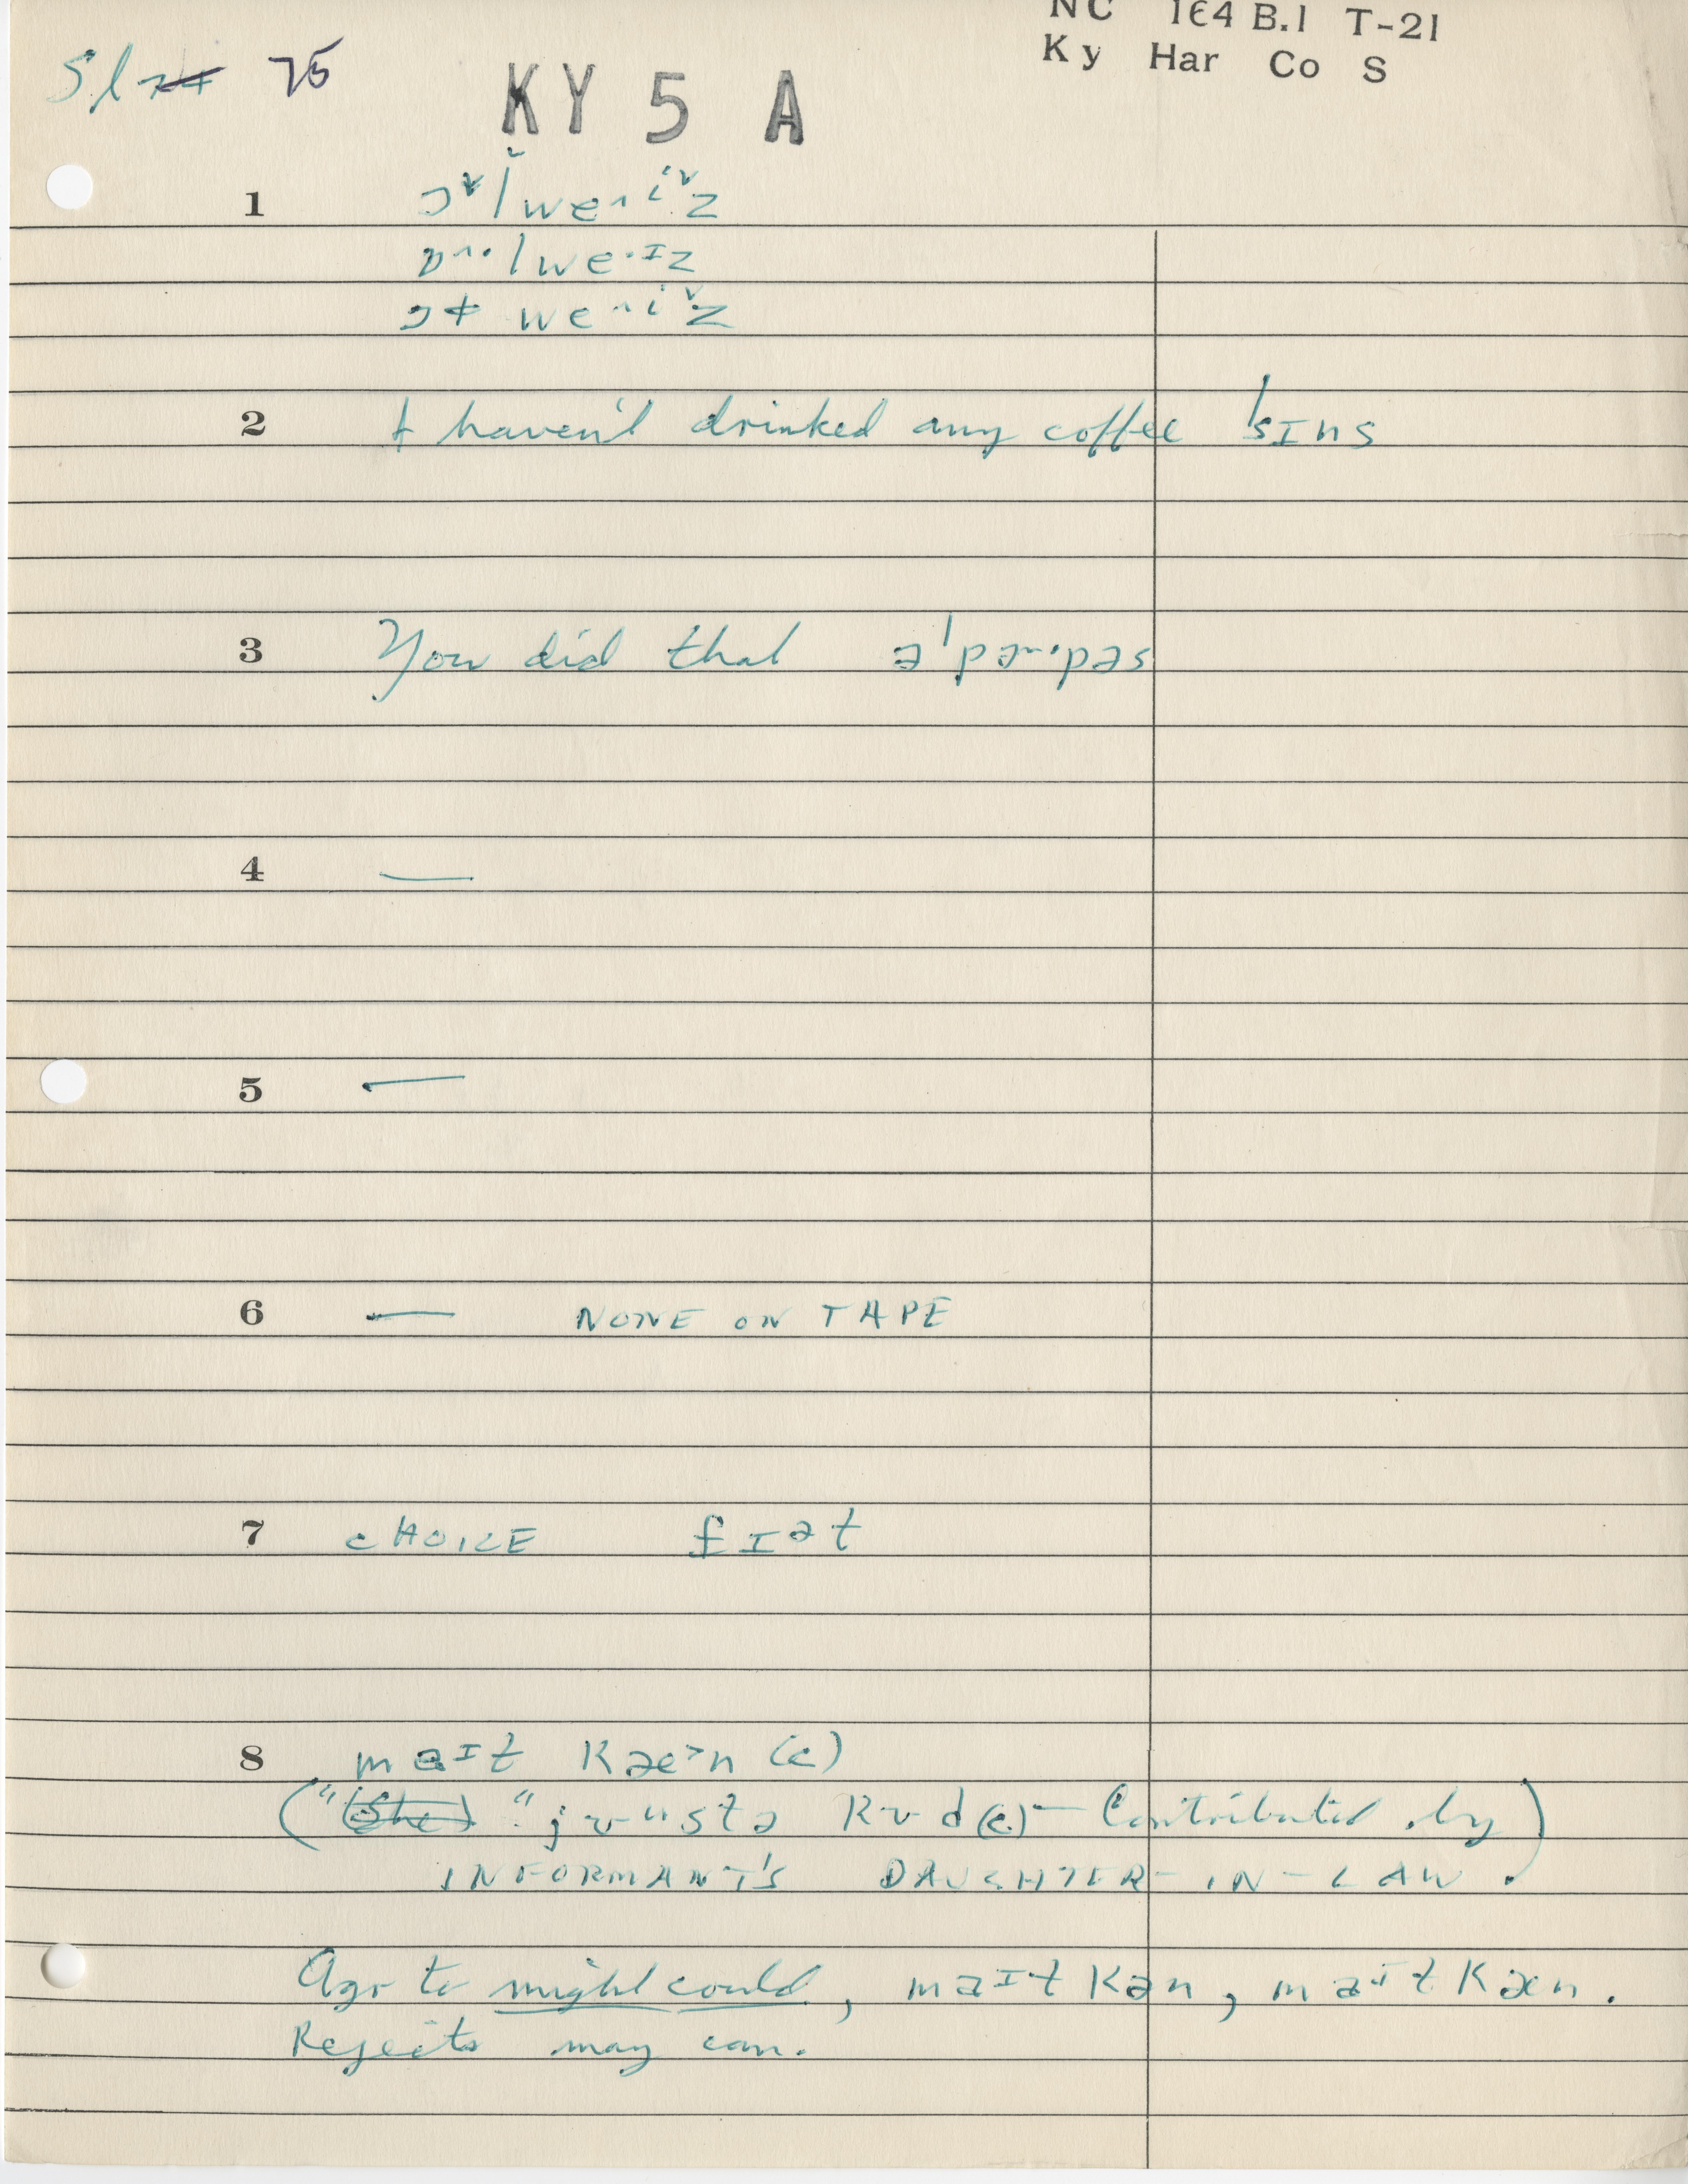 NC 1E4 B.1 T-21
Ky Har Co S
75
KY 5 A
1
2 I haven't drinked any coffee ˈsɪns
3 You did that əˈpɚ·pəs
4 —
5 —
6 — NONE ON TAPE
7 CHOICE fɪət
8 maɪt kæ˃n (c)
("(She)" juustə kud (c) — Contributed by)
INFORMANT'S DAUGHTER-IN-LAW.
Agr to might could, maɪt kən, maɪt kæn.
Rejects may can.